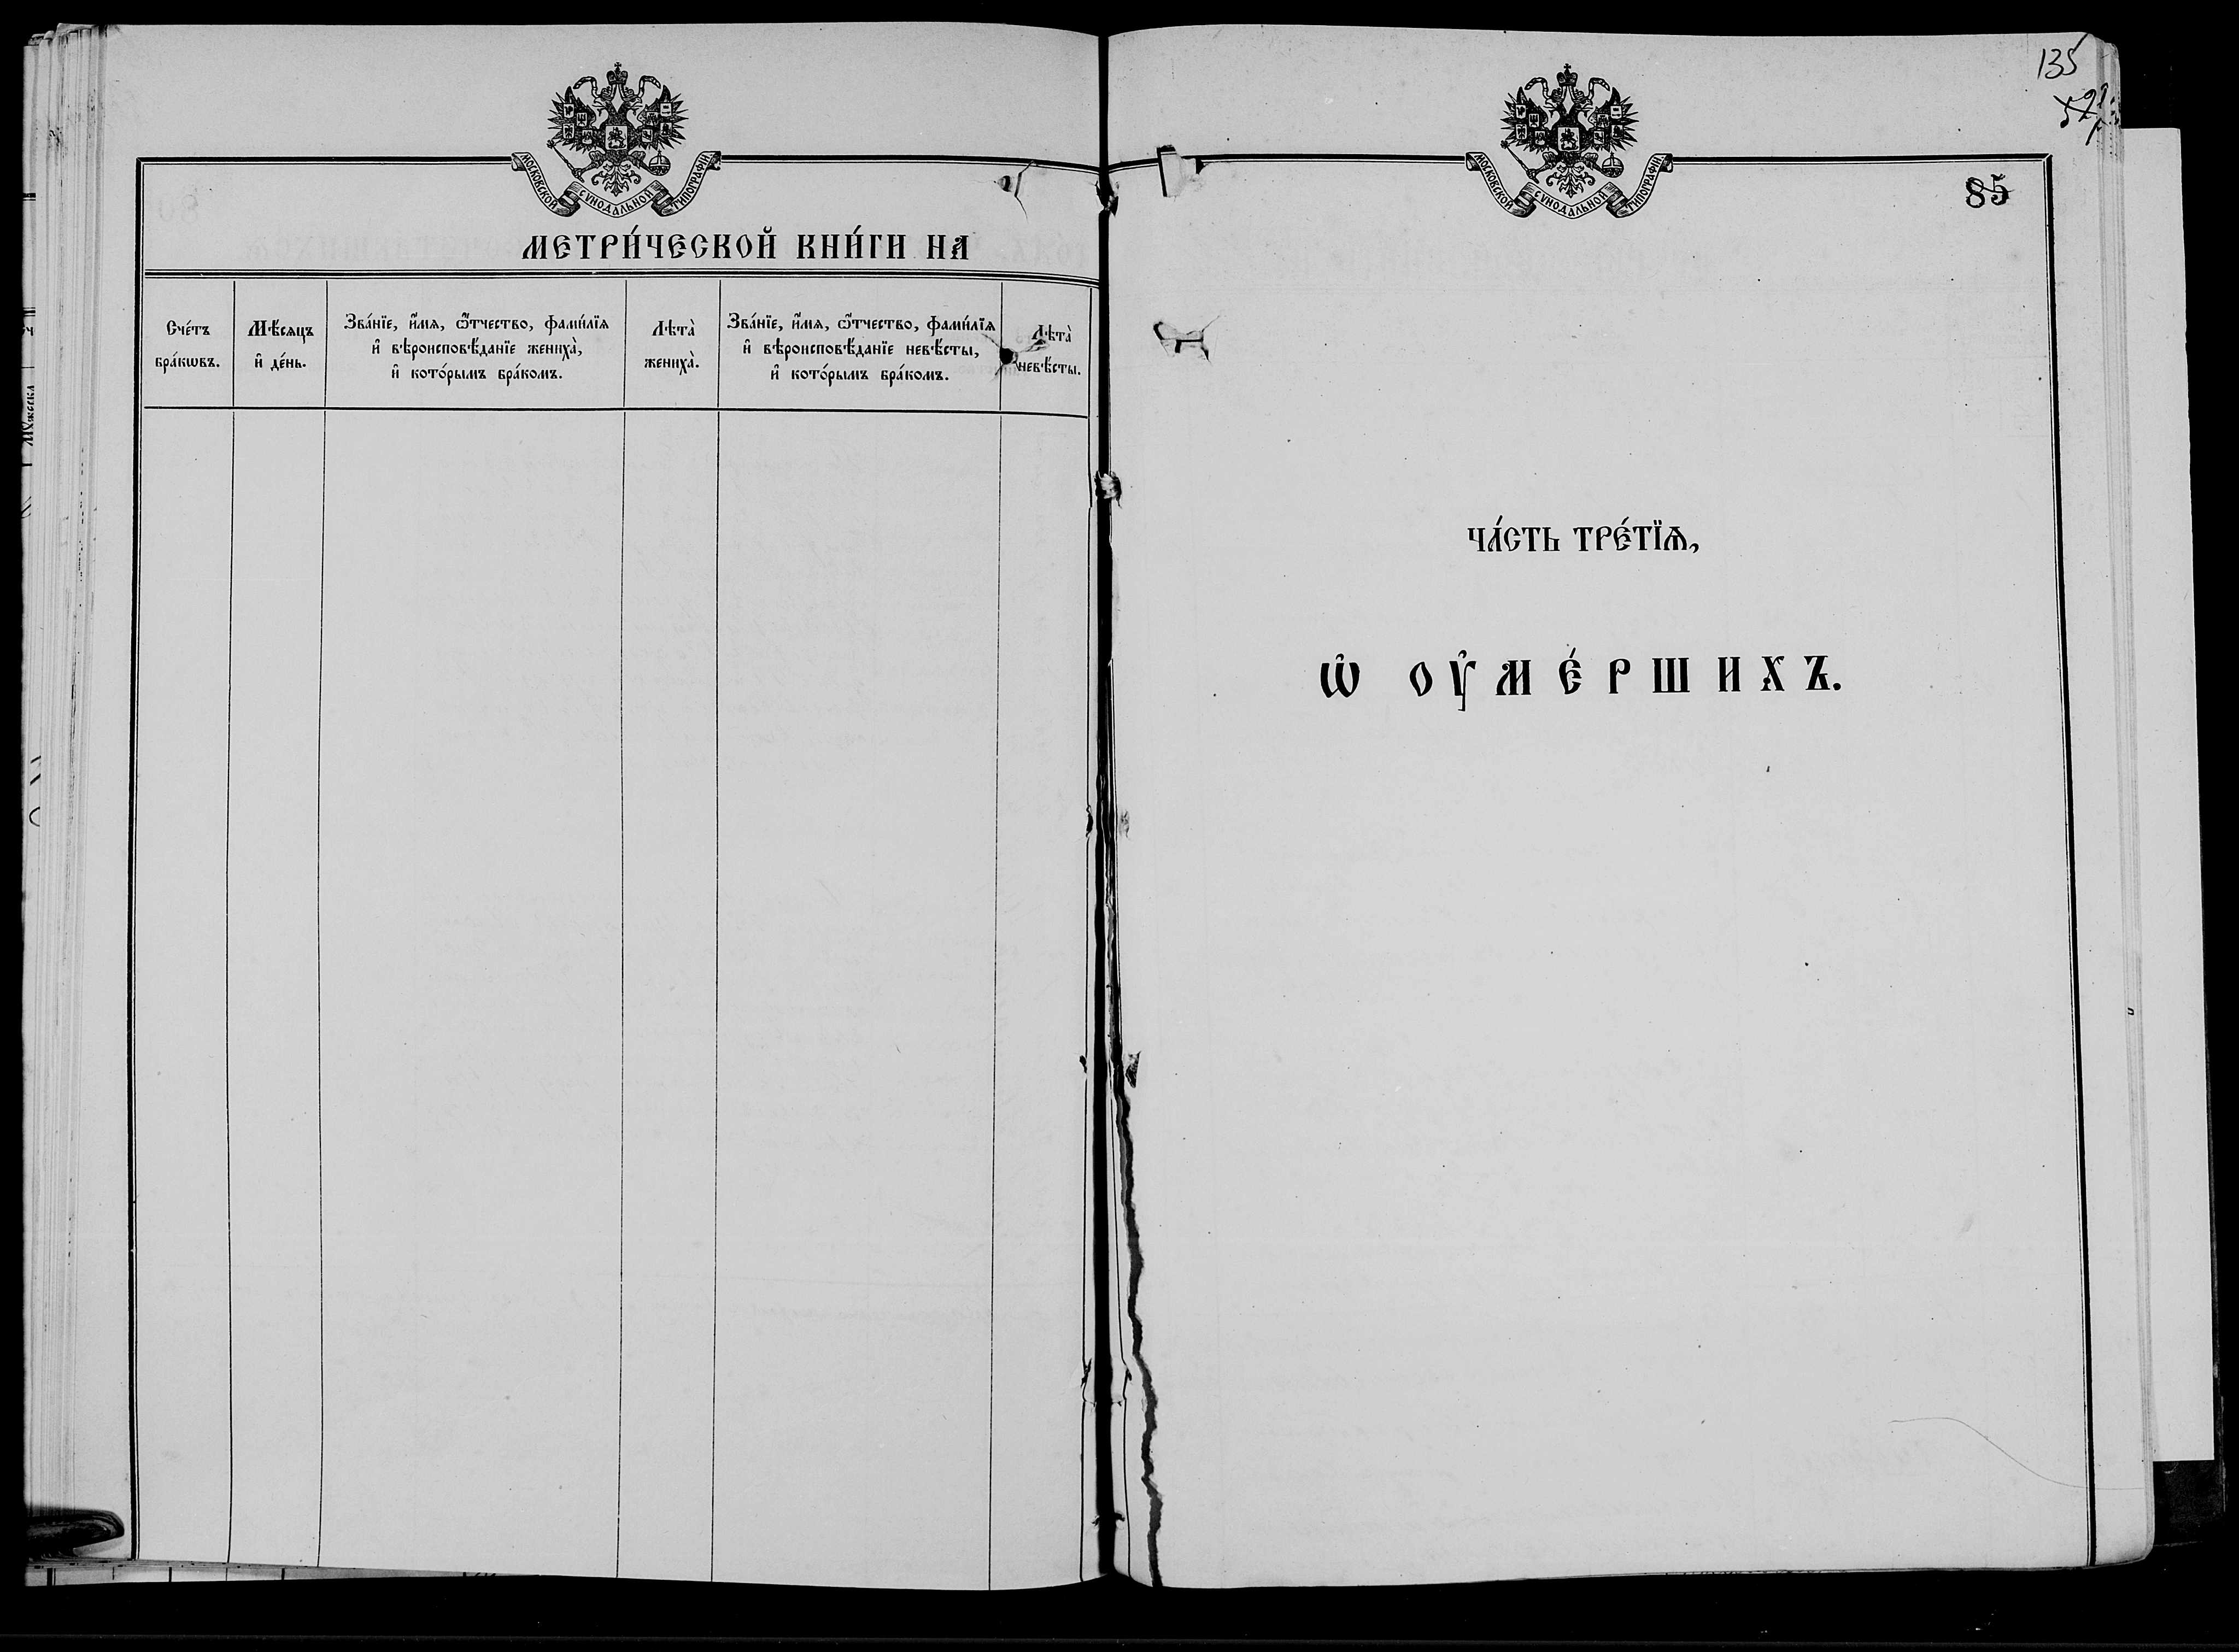 МОСКОВСКОЙ СѴНОДАЛЬНОЙ ТИПОГРАФІИ
МЕТРИ́ЧЕСКОЙ КНИ́ГИ НА
Сче́тъ
бра́кѡвъ.
Мѣ́сяцъ
и҆ де́нь.
Зва́нїе, и҆́мѧ, ѻ҆́тчество, фами́лїѧ
и҆ вѣроисповѣ́данїе жениха̀,
и҆ кото́рымъ бра́комъ.
Лѣта̀
женихà.
Зва́нїе, и҆́мѧ, ѻ҆́тчество, фами́лїѧ
и҆ вѣроисповѣ́данїе невѣ́сты,
и҆ кото́рымъ бра́комъ.
Лѣта̀
невѣ́сты.
135
МОСКОВСКОЙ СѴНОДАЛЬНОЙ ТИПОГРАФІИ
85
ЧА́СТЬ ТРЕ́ТЇѦ,
Ѡ҆ ОУ҆МЕ́РШИХЪ.